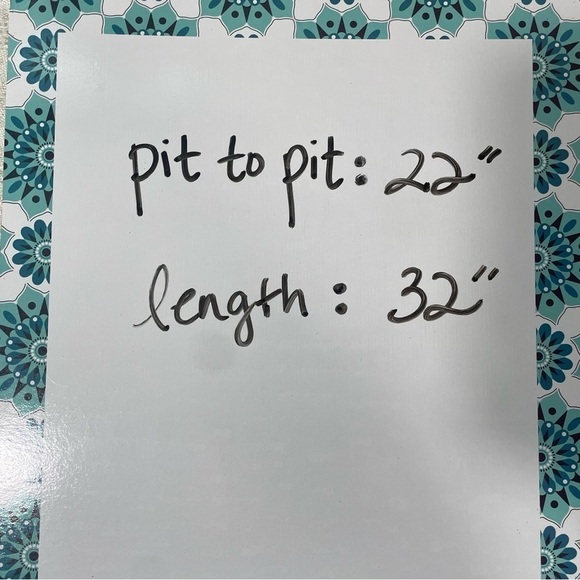 pit to pit: 22"
length: 32"